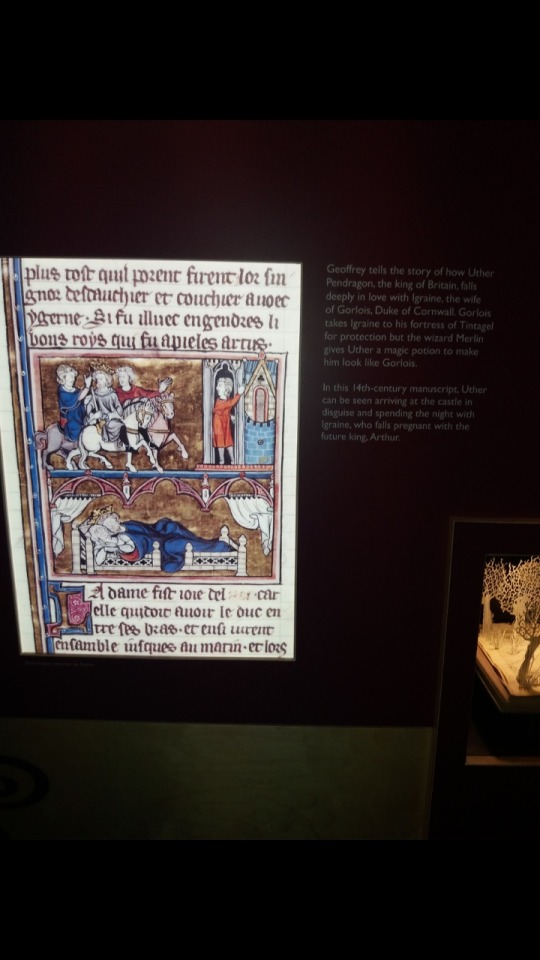 plus tost quil porent firent lor sin
gnor descauchier et couchier avoec
ygerne. Si fu illuec engendres li
bons roys qui fu apieles artus.
A dame fist ioie del car
elle quidoit auoit le duc en
tre ses bras. et ensi iurent
ensamble iusques au matin. et lors
Geoffrey tells the story of how Uther
Pendragon, the king of Britain, falls
deeply in love with Igraine, the wife
of Gorlois, Duke of Cornwall. Gorlois
takes Igraine to his fortress of Tintagel
for protection but the wizard Merlin
gives Uther a magic potion to make
him look like Gorlois.
In this 14th-century manuscript, Uther
can be seen arriving at the castle in
disguise and spending the night with
Igraine, who falls pregnant with the
future king, Arthur.